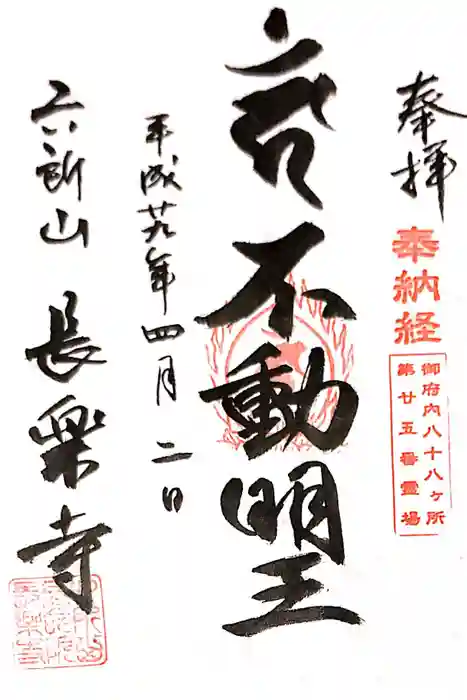 奉拝
奉納経
御府内八十八ヶ所
第廿五番霊場
不動明王
平成廿九年四月二日
六所山
長樂寺